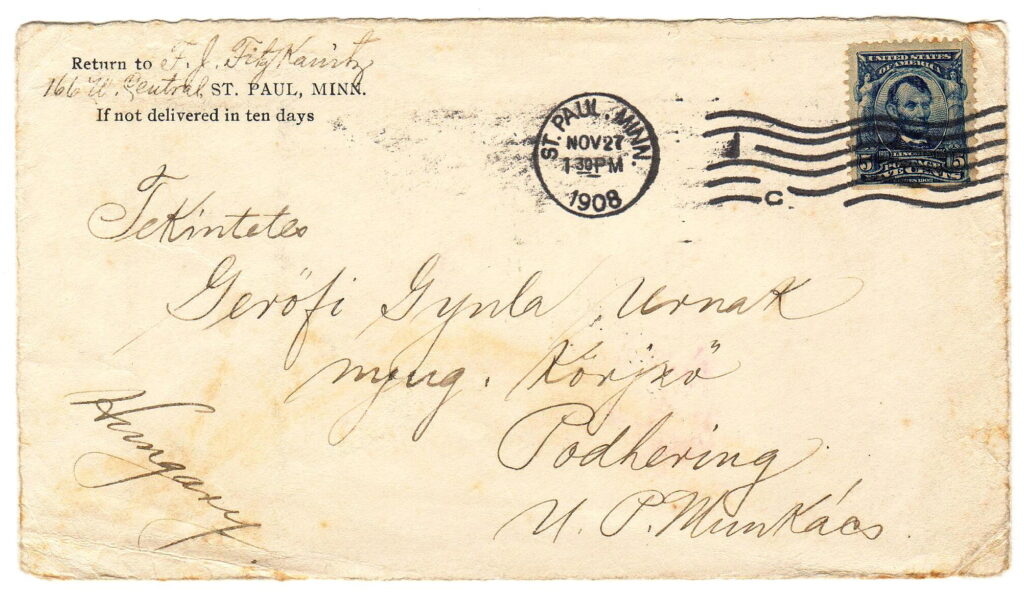 Return to F. J. Fitz Kanitz
166 W. Central ST. PAUL, MINN.
If not delivered in ten days
ST. PAUL. MINN.
NOV 27
1 30 PM
1908
C
UNITED STATES
OF AMERICA
5 5
FIVE CENTS
Tekintetes
Gerőfi Gyula Urnak
nyug.
Podhering
U. P. Munkács
Hungary